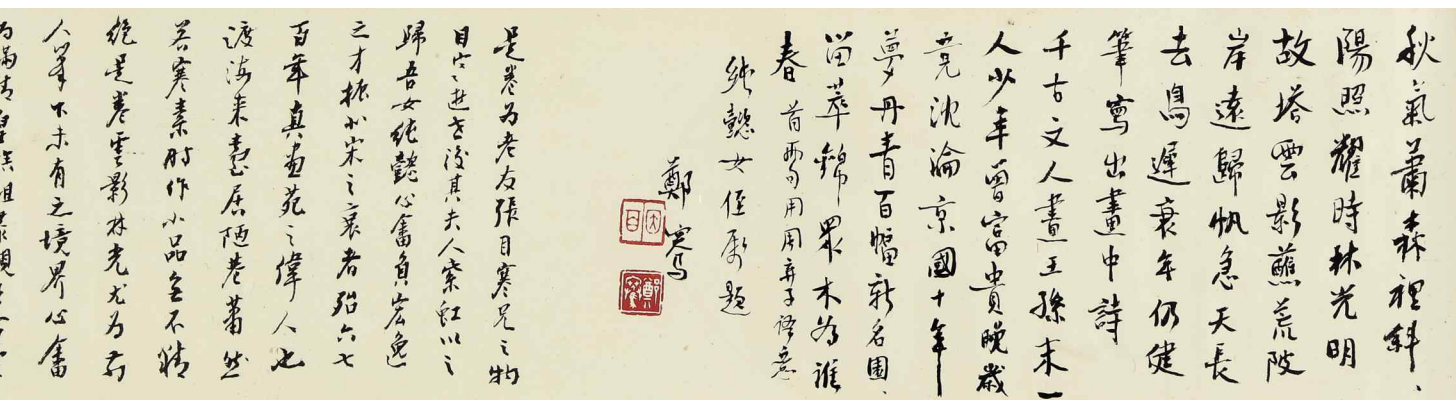 秋氣蕭森裡斜、
陽照耀時林光明
故塔雲影蘸荒陂
岸遠歸帆急天長
去鳥遲衰年仍健
筆寫出畫中詩
千古文人畫王孫末一
人少年曾富貴晚歲
竟沈淪京國十年
夢丹青百幅新名園、
留萃錦眾木為誰
春 首兩句用周弃子語意
純懿女侄屬題
鄭騫
因百
鄭騫
是卷為老友張目寒兄之物
目寒逝世後其夫人紫虹以之
歸吾女純懿心畬負宏逸
之才振北宋之衰者殆六七
百年真畫苑之偉人也
渡海來臺居陋巷蕭然
若寒素所作小品無不精
絕是卷雲影林光尤為前
人筆下未有之境界心畬
為滿清皇族